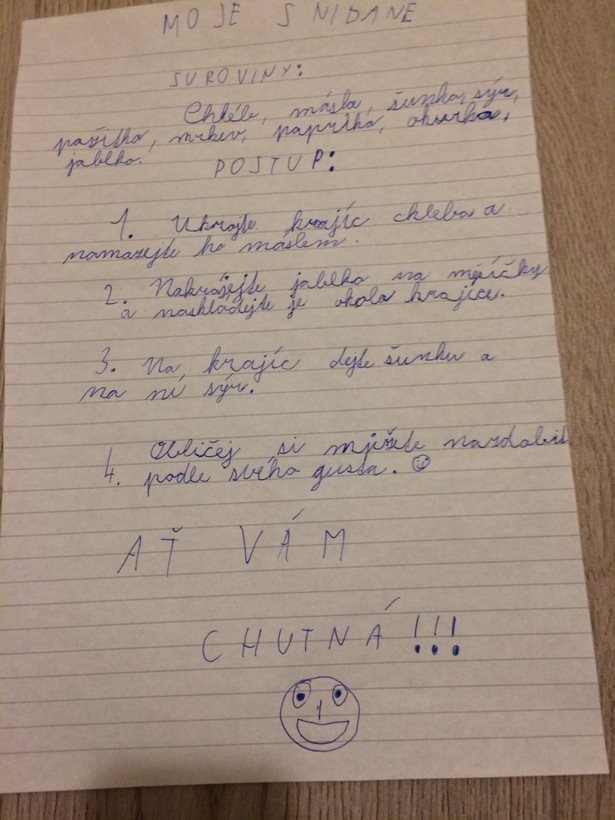 MOJE SNIDANE
SUROVINY:
Chléb, máslo, šunka, sýr,
pažitka, mrkev, paprika, okurka,
jablko.
POSTUP:
1. Ukrojte krajíc chleba a
namazejte ho máslem.
2. Nakrájejte jablko na měsíčky
a naskládejte je okolo krajíce.
3. Na krajíc dejte šunku a
na ní sýr.
4. Obličej si mužete nazdobit
podle svého gusta.
AŤ VÁM
CHUTNÁ!!!